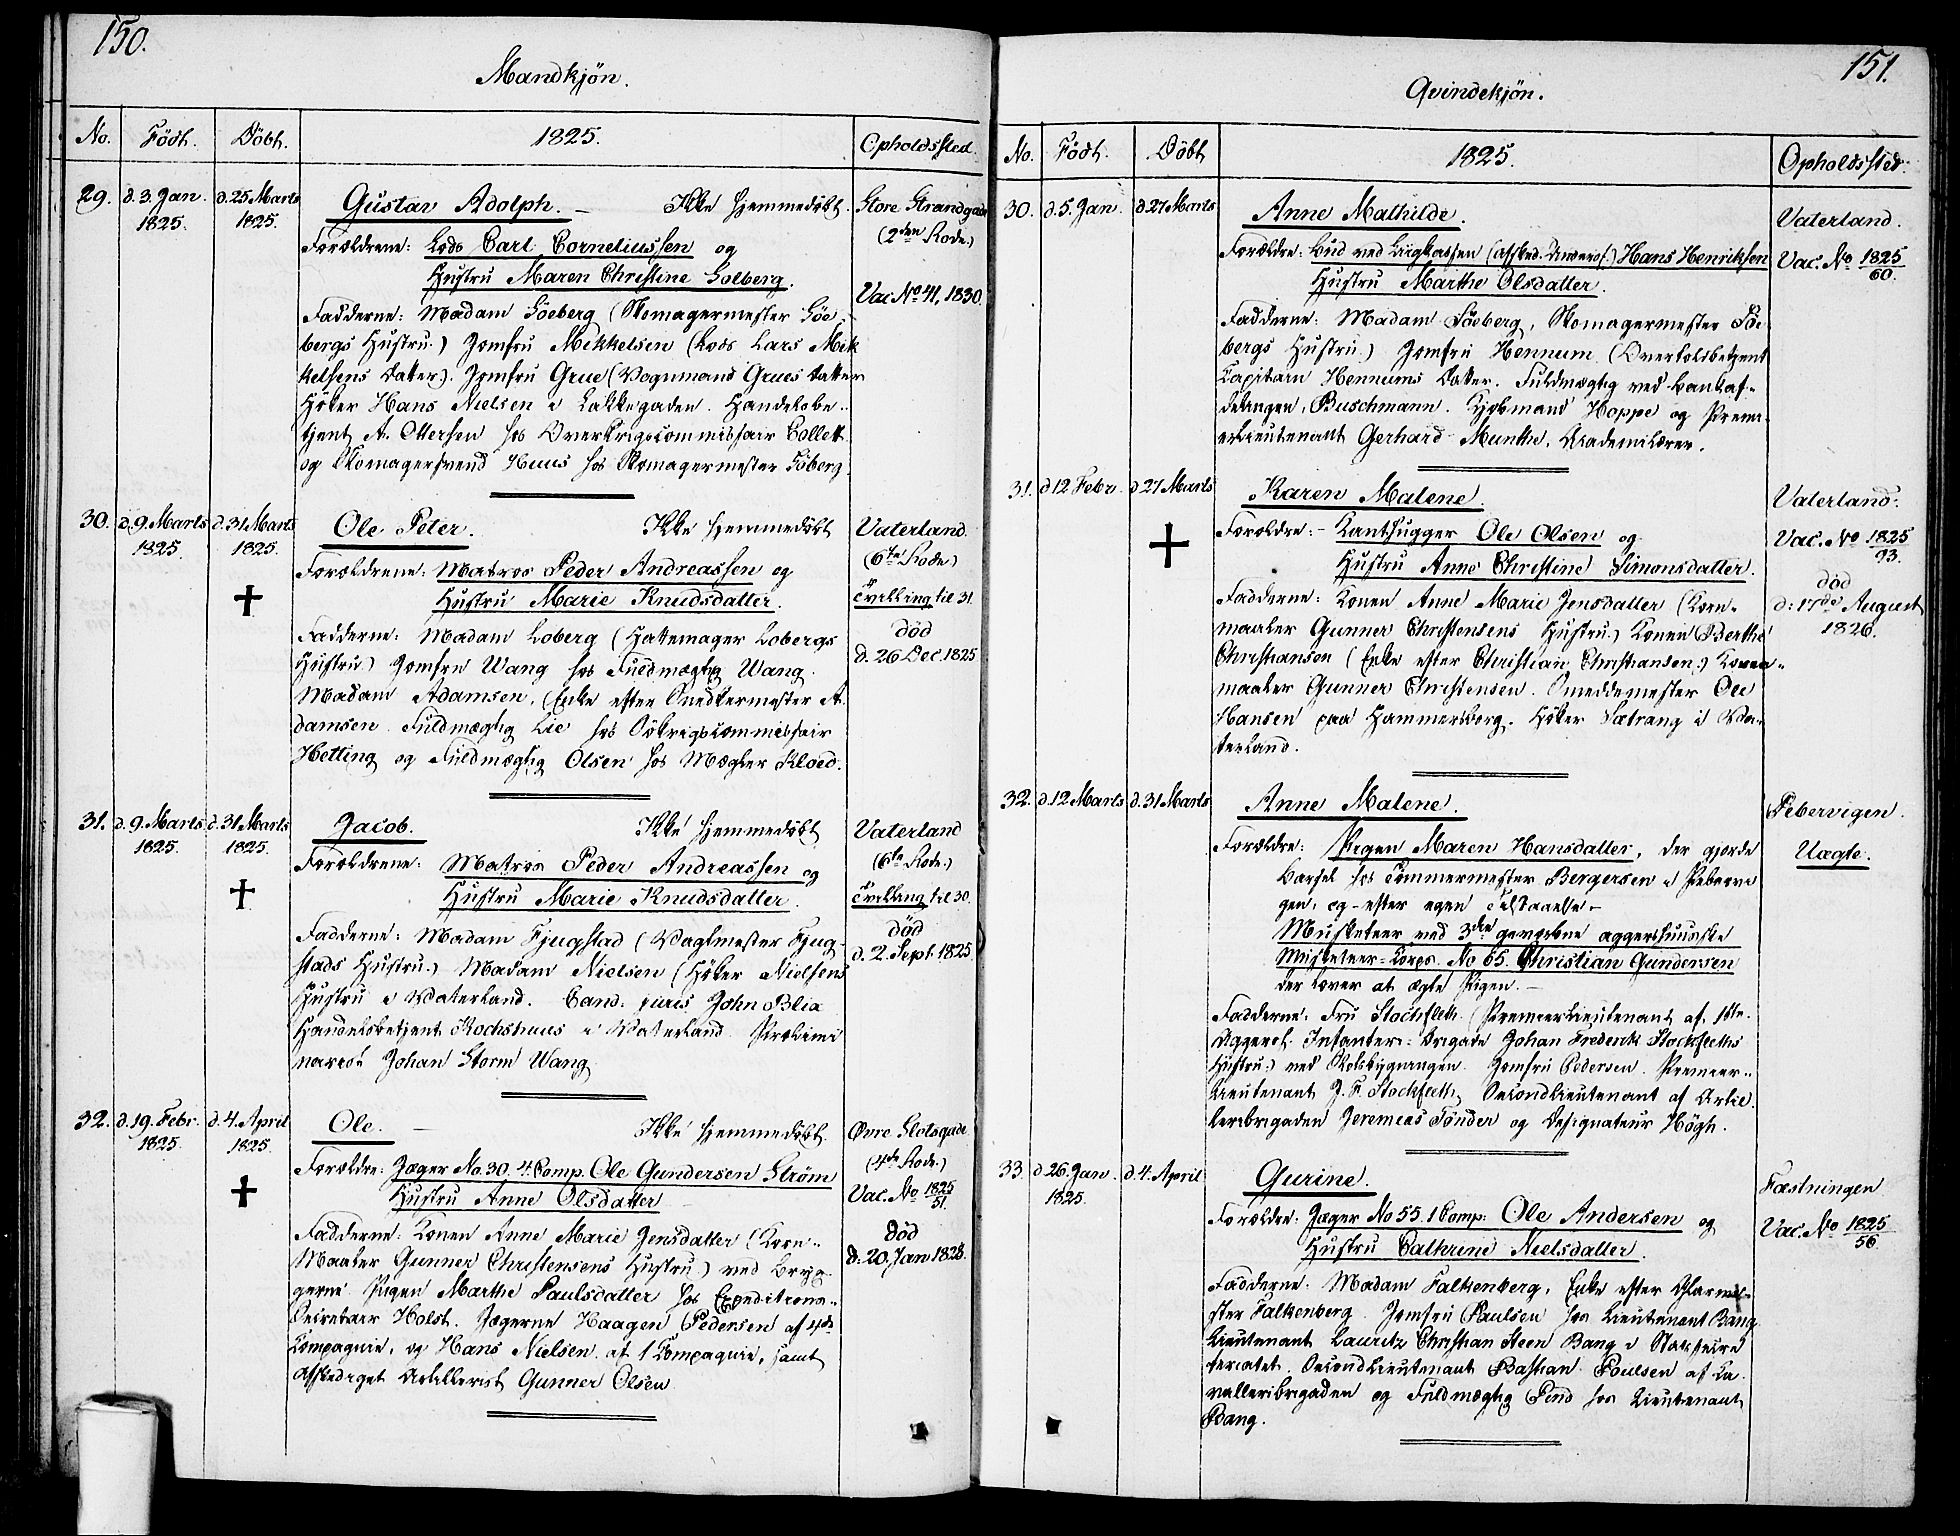 150.
Mandkjön.
No. Födt. Döbt. 1825. Opholdssted.
29. d. 3. Jan. 1825. d. 25 Marts 1825.
Gustav Adolph. – Ikke hjemmedöbt.
Forældrene: Lods Carl Corneliussen og
Hustru Maren Christine Solberg.
Fadderne: Madam Söeberg (Skomagermester Söe-
bergs Hustru.) Jomfru Mikkelsen (Lods Lars Mik
kelsens Datter). Jomfru Grue (Vognmand Grues Datter
Höker Hans Nielsen i Lakkegaden. Handelsbe-
tjent A. Ottersen hos Overkrigscommissair Collett
og Skomagersvend Huus hos Skomagermester Söberg.
Store Strandgade
(2den Rode.)
Vac. No 41, 1830.
30. d. 9. Marts 1825. d. 31 Marts 1825.
Ole Peter. Ikke hjemmedöbt
Forældrene: Matros Peder Andreassen og
Hustru Marie Knudsdatter.
Fadderne: Madam Loberg (Hattemager Lobergs
Hustru.) Jomfru Wang hos Fuldmægtig Wang.
Madam Adamsen, (Enke efter Snedkermester A-
damsen. Fuldmægtig Lie hos Sökrigscommissair
Hetting og Fuldmægtig Olsen hos Mægler Kloed.
Vaterland.
(6te Rode)
Tvilling til 31.
död
d. 26 Dec. 1825
31. d. 9. Marts 1825. d. 31 Marts 1825.
Jacob. Ikke hjemmedöbt
Forældrene: Matros Peder Andreassen og
Hustru Marie Knudsdatter.
Fadderne: Madam Fjugstad (Vagtmester Fjug-
stads Hustru.) Madam Nielsen (Höker Nielsens
Hustru i Vaterland. Cand. juris John Blix
Handelsbetjent Kochshuus i Vaterland. Prælimi
narist Johan Storm Wang
Vaterland
(6te Rode.)
Tvilling til 30.
död
d. 2. Sept. 1825.
32. d. 19. Febr. 1825. d. 4. April 1825.
Ole. – Ikke hjemmedöbt.
Forældre: Jæger No. 30. 4. Comp. Ole Gundersen Ström
Hustru Anne Olsdatter
Fadderne: Konen Anne Marie Jensdatter (Korn-
Maaler Gunner Christensens Hustru.) ved Bryg
gerne. Pigen Marthe Paulsdatter hos Expeditions-
Secretair Holst. Jægerne Haagen Pedersen af 4de
Compagnie, og Hans Nielsen af 1 Compagnie, samt
Afskediget Artillerist Gunner Olsen.
Øvre Slotsgade
(4de Rode.)
Vac. No 1825/51.
död
d. 20. Jan 1828.
151.
Qvindekjön.
No. Födt. Döbt 1825. Opholdssted.
30. d. 5. Jan. d. 27 Marts
Anne Mathilde.
Forældre: Bud ved Liigkassen (afsked. Underof.) Hans Henriksen
Hustru Marthe Olsdatter.
Fadderne: Madam Söeberg, Skomagermester Söe-
bergs Hustru.) Jomfru Hennum (Overtoldbetjent
Capitain Hennums Datter. Fuldmægtig ved Bankaf-
delingen, Buschmann. Kjöbmand Hoppe og Premi-
erlieutenant Gerhard Munthe, Academilærer.
Vaterland.
Vac. No 1825/60.
31. d 12 Febr. d. 27 Marts
Karen Malene.
Forældre: – Kanthugger Ole Olsen og
Hustru Anne Christine Simonsdatter.
Fadderne: Konen Anne Marie Jensdatter (Korn-
maaler Gunner Christensens Hustru.) Konen Berthe
Christiansen (Enke efter Christian Christiansen.) Korn-
maaler Gunner Christensen. Smeddemester Ole
Hansen paa Hammersborg. Höker Sætrang i Va-
terland.
Vaterland.
Vac. No 1825/93.
död
d. 17de August
1826.
32. d. 12 Marts d. 31 Marts
Anne Malene.
Forældre: Pigen Maren Hansdatter, der gjorde
Barsel hos Tömmermester Bergersen i Pebervi
gen, og – efter egen Tilstaaelse –
Musketeer ved 3die gevorbne aggershuusske
Musketeer-Corps. No 65. Christian Gundersen
der lover at ægte Pigen. –
Fadderne: Fru Stockfleth (Premierlieutenant af 1ste
Aggersh. Infanteri-Brigade Johan Frederik Stockfleths
Hustru.) ved Volsbygningen. Jomfru Pedersen. Premier-
Lieutenant J. F. Stockfleth, Secondlieutenant af Artil
leribrigaden Jeremias Tönder og Designateur Högh.
Pebervigen.
Uægte.
33 d. 26. Jan. 1825. d. 4. April
Gurine.
Forældre: Jæger No 55. 1 Comp. Ole Andersen og
Hustru Cathrine Nielsdatter.
Fadderne: Madam Falkenberg, Enke efter
ster Falkenberg. Jomfru Paulsen hos Lieutenant Bang
Lieutenant Lauritz Christian Steen Bang i Statssecre
teriatet. Secondlieutenant Bastian Poulsen af Ca
valleribrigaden og Fuldmægtig Pind hos Lieutenant
Bang.
Fæstningen
Vac. No 1825/56.